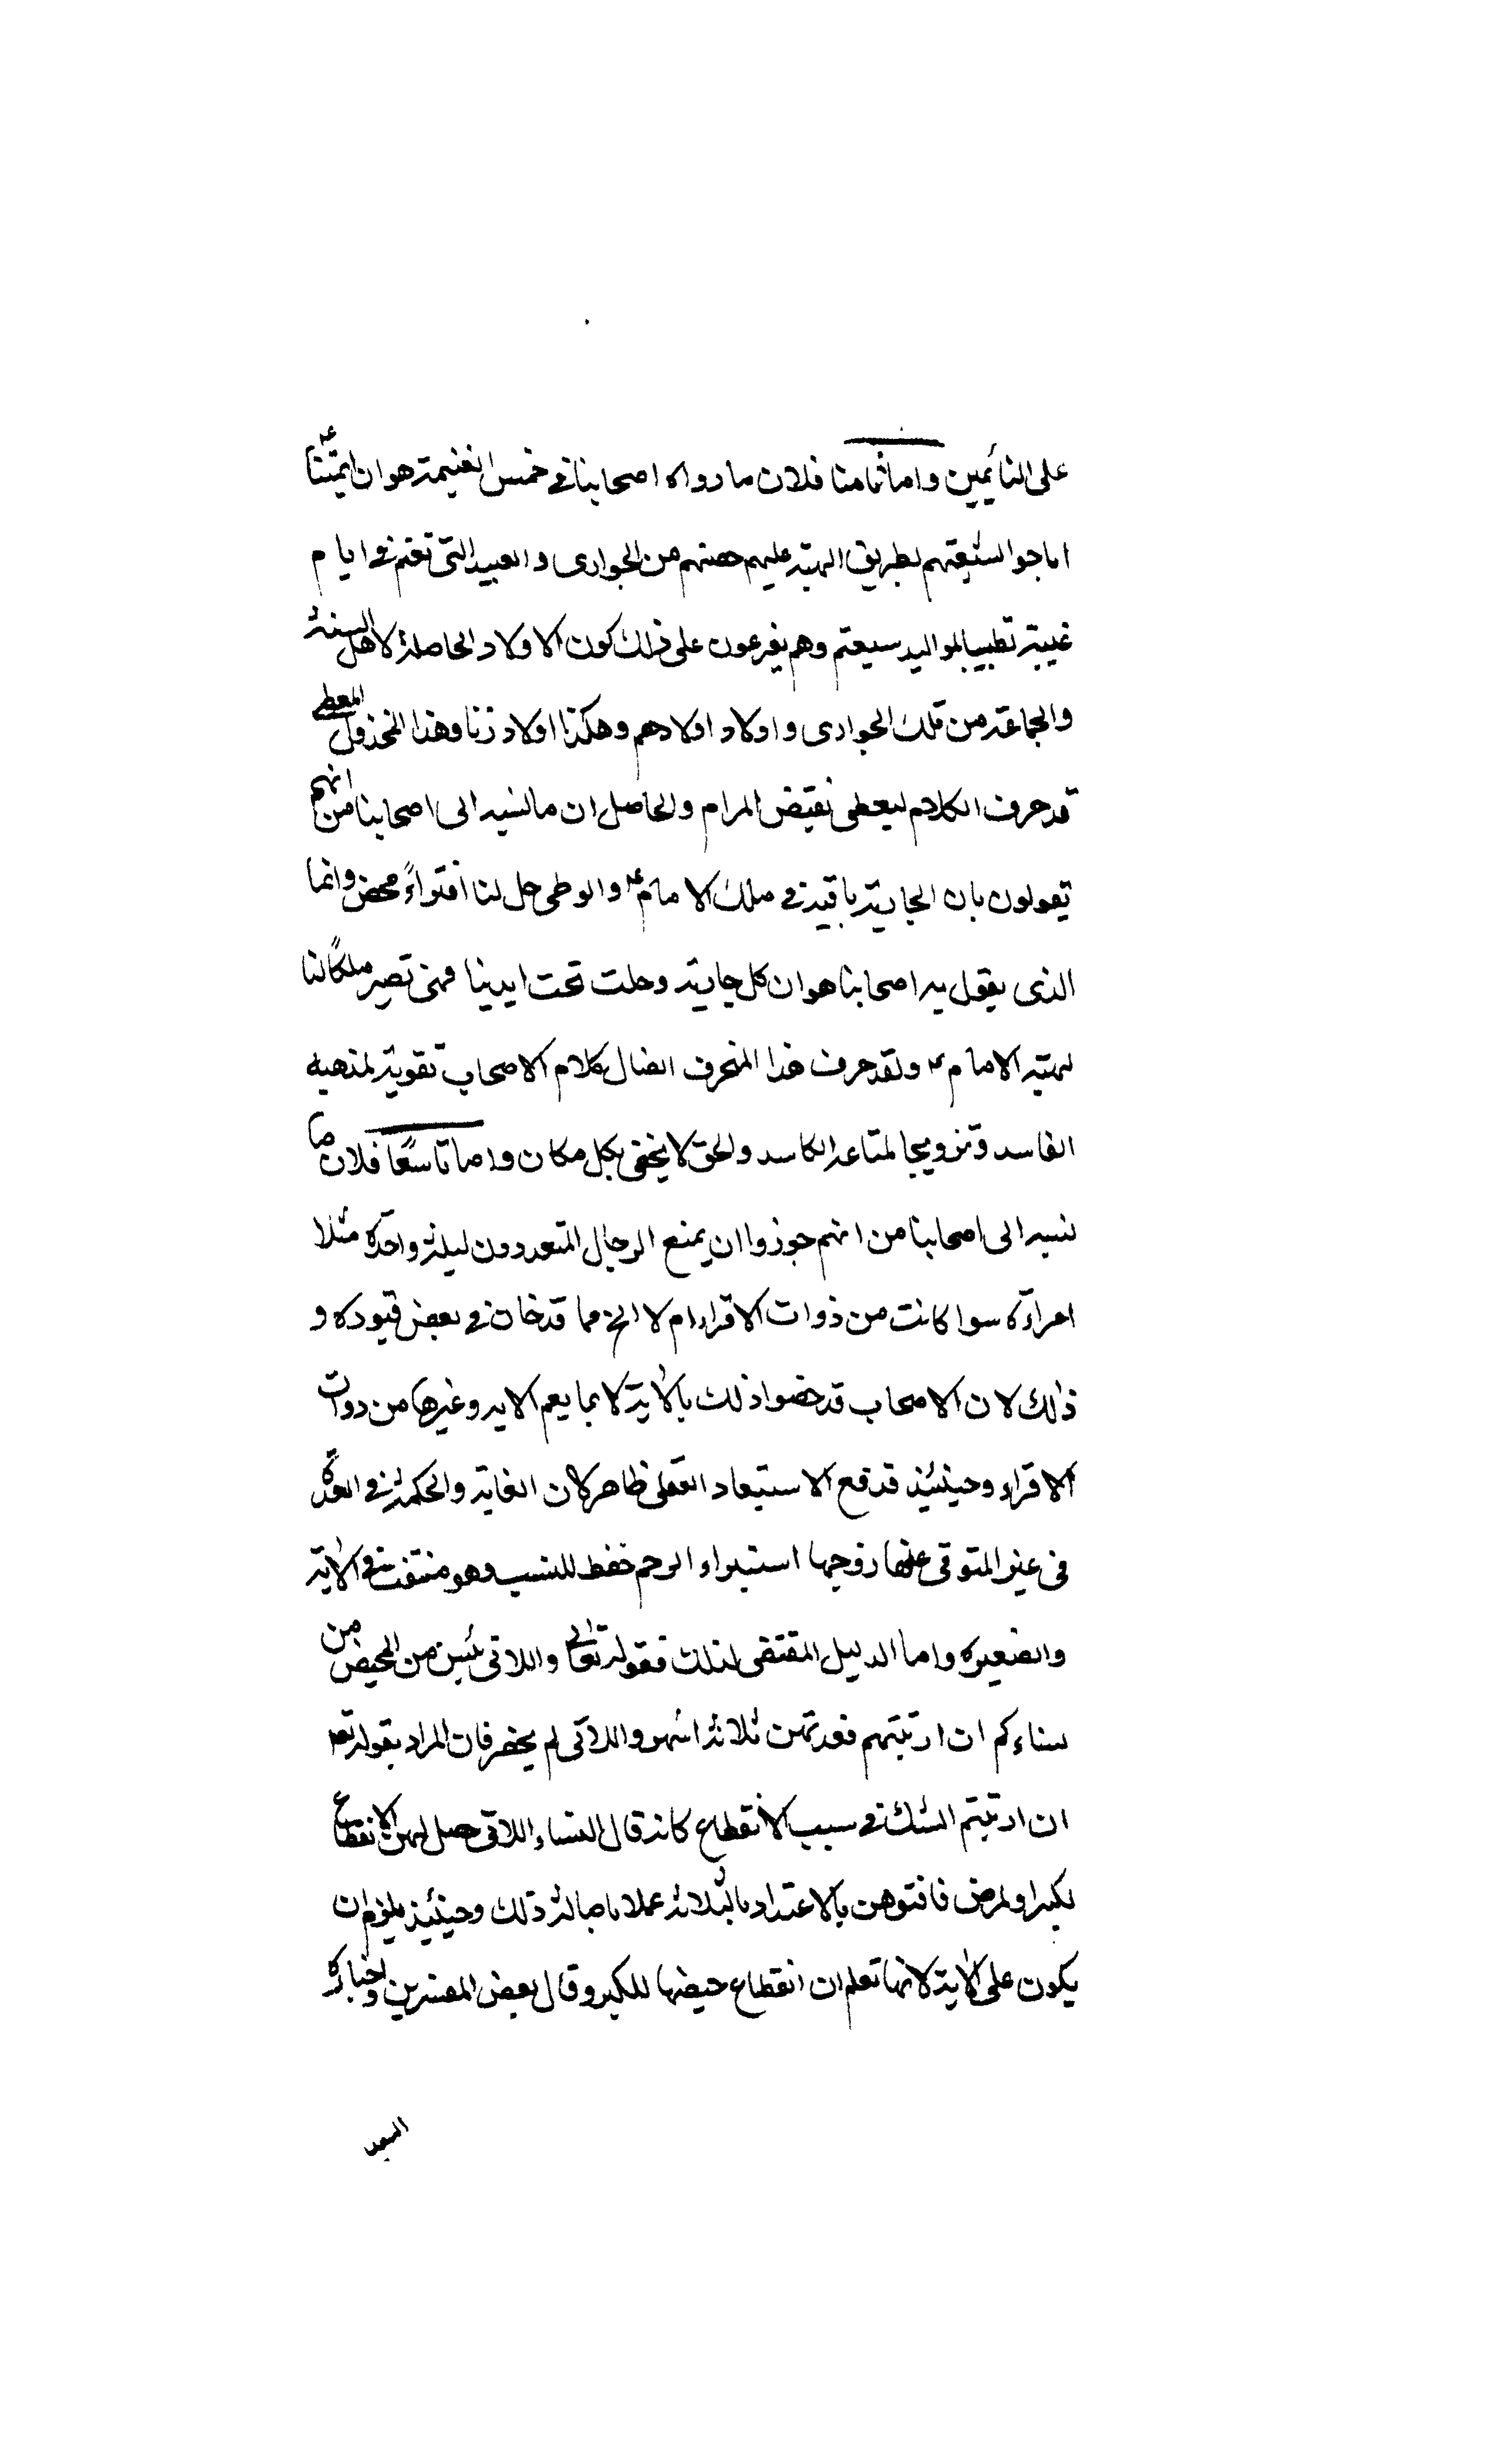 على النائمين واما ثامنا فلان ما رواه اصحابنا في خمس الغنيمة هو ان ائمتنا ع
اباحوا لشيعتهم بطريق الهبة عليهم حصتهم من الجواري والعبيد التي تغتنم في ايام
غيبة تطييبا لمواليد سيعتم وهم يفرعون على ذلك كون الاولاد الحاصلة لاهل السنة
والجماعة من تلك الجواري واولاد اولادهم وهكذا اولاد زنا وهذا المخذول المعطى
قد حرف الكلام ليعطى نقيض المرام والحاصل ان ما نسبه الى اصحابنا من انهم
يقولون بان الجارية باقية في ملك الامام ع والوطى حل لنا افتراءً محض وانما
الذى يقول به اصحابنا هو ان كل جارية دخلت تحت ايدينا فهى تصير ملكًا لنا
لهبة الامام ع ولقد حرف هذا المنحرف الضال كلام الاصحاب تقوية لمذهبه
الفاسد وتزويجا لمتاعه الكاسد والحق لا يخفى بكل مكان واما تاسعًا فلان ما
نسبه الى اصحابنا من انهم جوزوا ان يمتع الرجال المتعددون ليلة واحدة مثلا
امراة سوا كانت من ذوات الاقراء ام لا الخ مما قد خان في بعض قيوده و
ذلك لان الاصحاب قد خصوا ذلك بالآية لا بما يعم الايه وغيرها من ذوات
الاقراء وحينئيذ قدفع الاستبعاد العقلى ظاهر لان الغاية والحكمة في العدة
فى غير المتوفى عنها زوجها استبراء الرحم حفظ للنسب وهو منتفية في الآية
والصغيره واما الدليل المقتضى لذلك فقوله تعالى واللاتى يئسن من المحيض من
نساءكم ان ارتبتم فعدتهن ثلاثة اشهر واللاتى لم يحضر فان المراد بقوله تعه
ان ارتبتم الشك في سبب الانقطاع كانه قال النساء اللاتى حصل لهن الانقطاع
لكبر او لمرض فافتوهن بالاعتداد بالثلاثة عملا باصالة ذلك وحينئيذ يلزم ان
يكون على الآية لانها تعلم ان انقطاع حيضها للكبر وقال بعض المفسرين واختاره
السيد